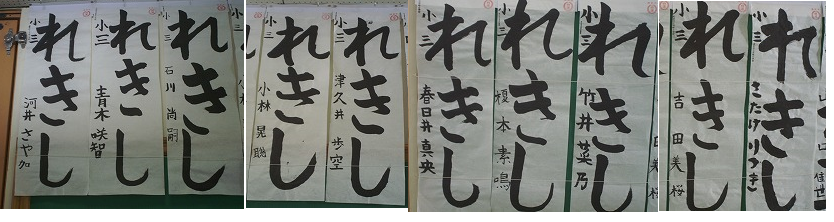 れきし
小三
河井さや加
れきし
小三
青木咲智
れきし
小三
石川尚嗣
れきし
小三
小林晃聡
れきし
小三
津久井歩空
れきし
小三
春日井真央
れきし
小三
榎本素鳴
れきし
小三
竹井菜乃
れきし
小三
吉田美桜
れきし
小三
きたけりつき